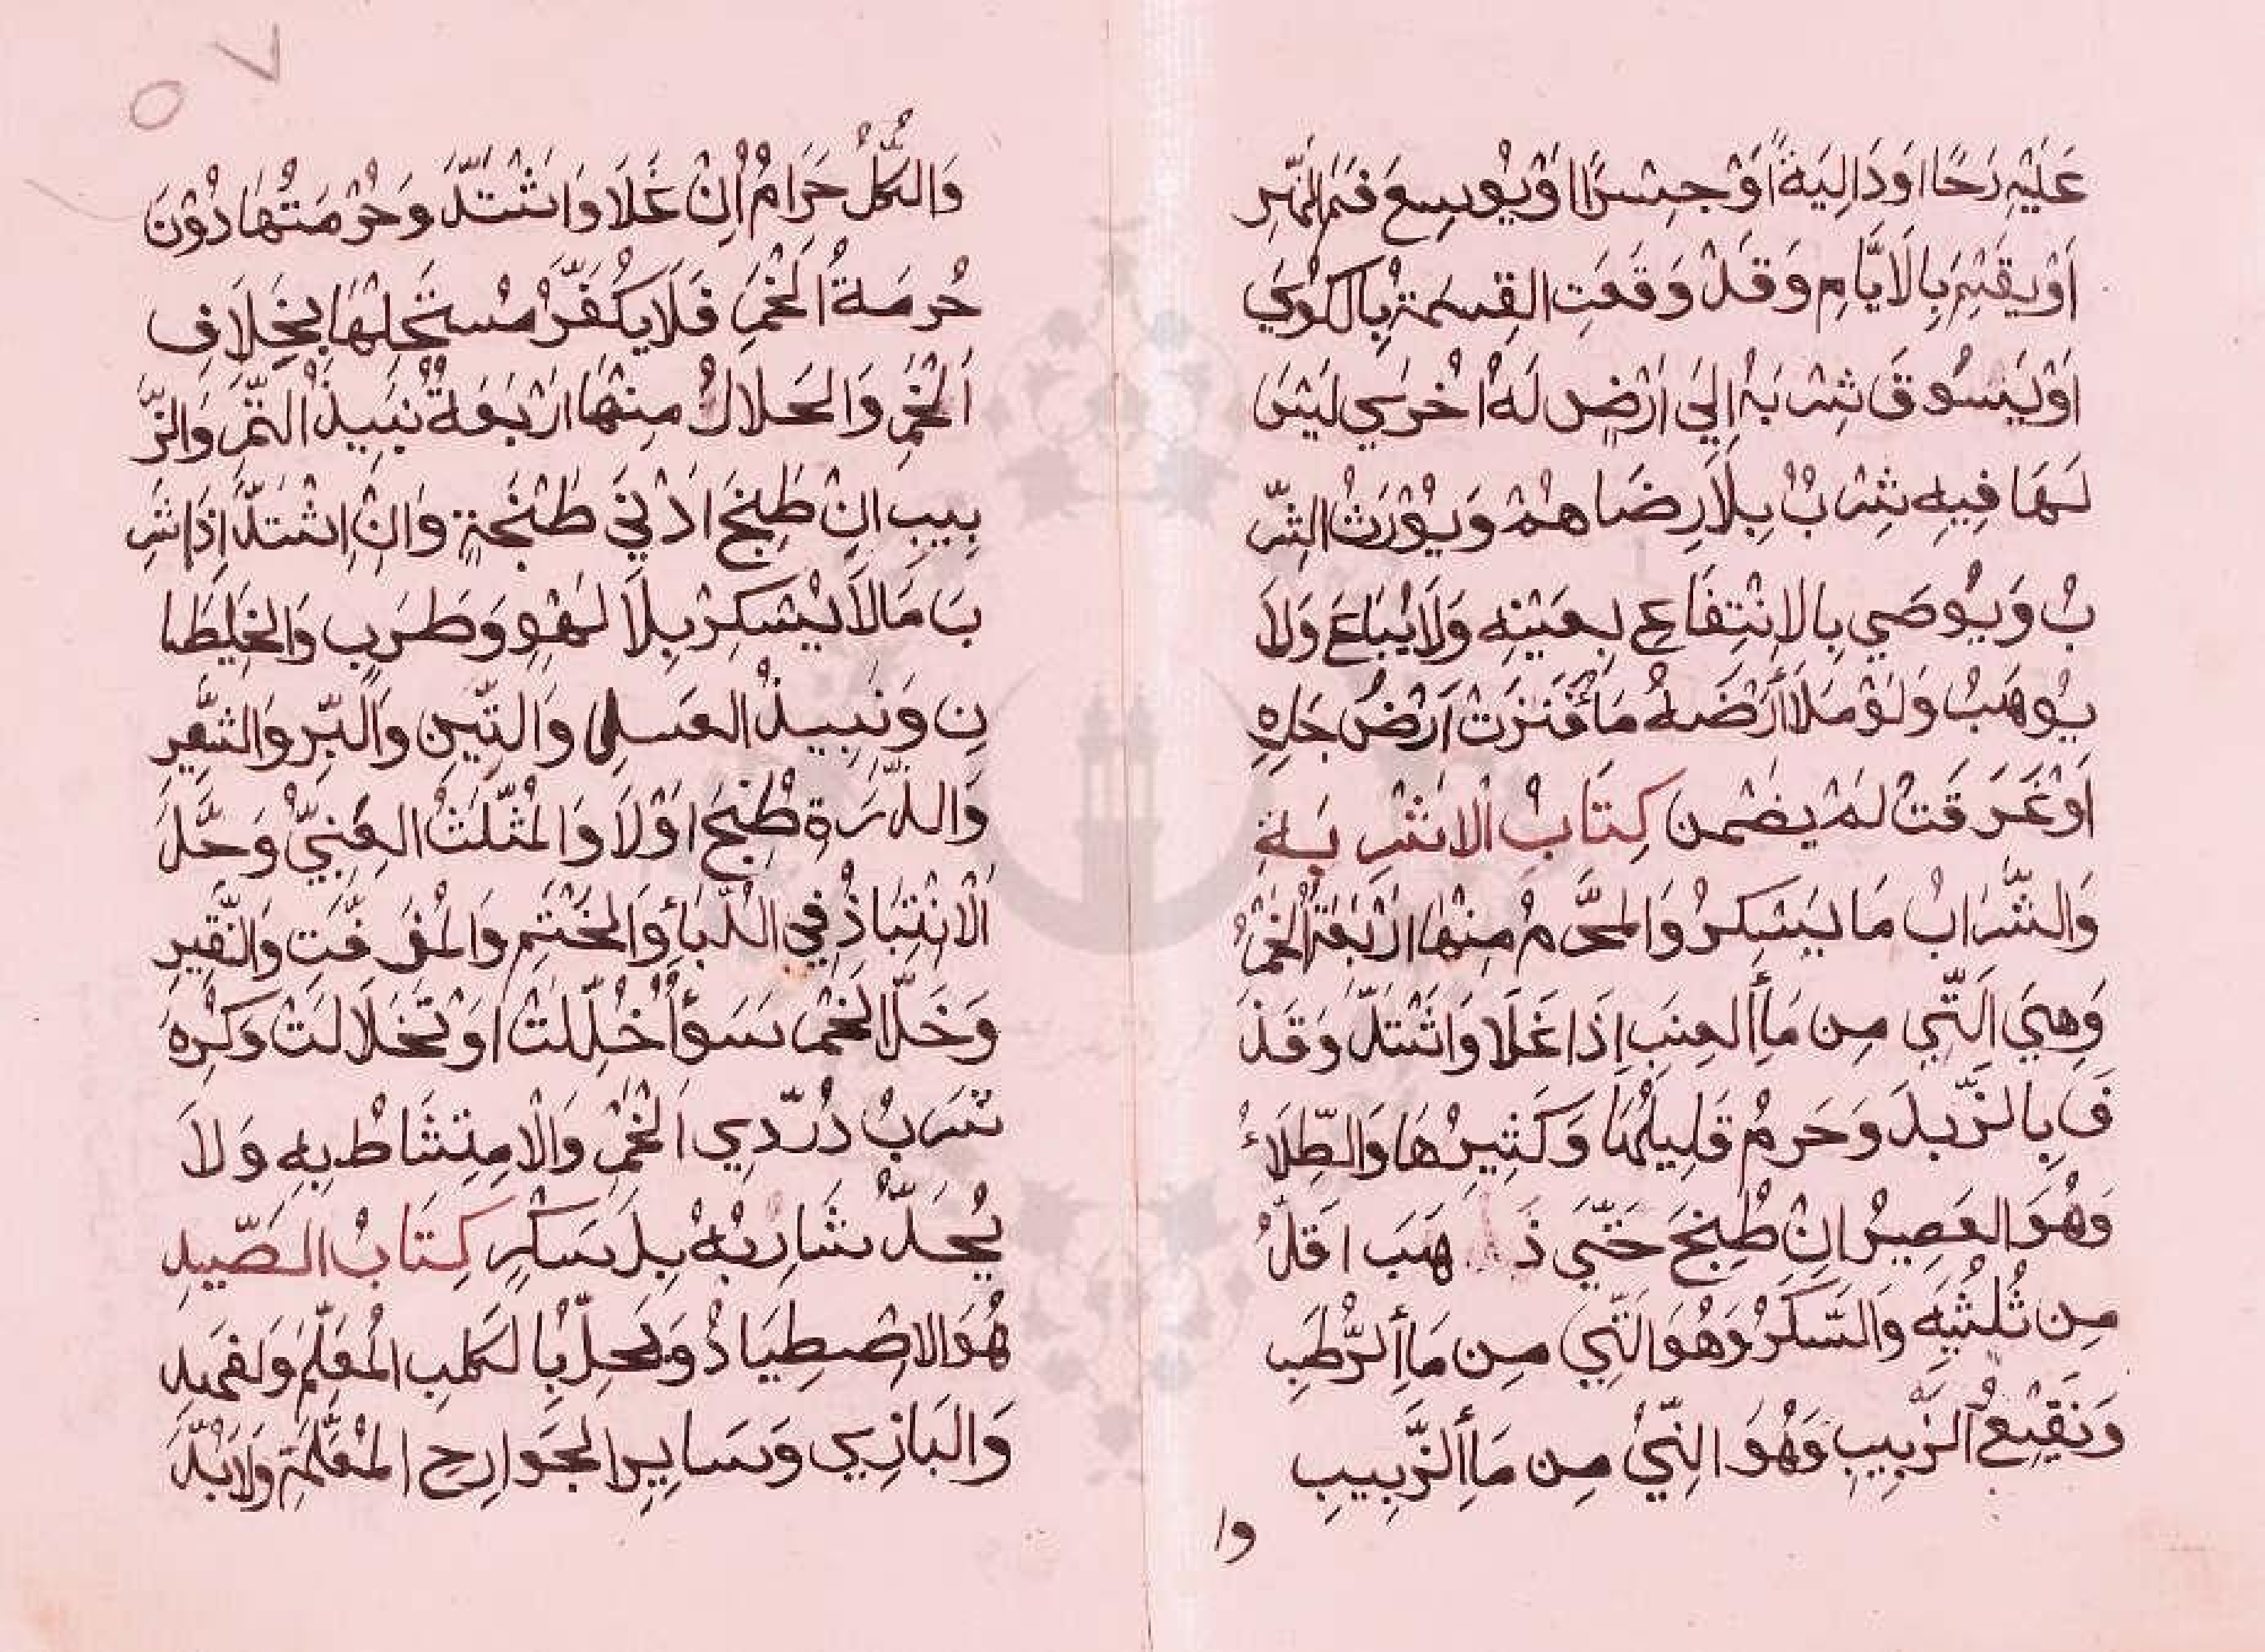 عَلَيْهِ رَحًا اَوْدَالِيَةً اَوْجِسْرًا اَوْيُوسِعَ فَمَ النَّهْرِ
اَوْيقَسِّمَ بِالْاَيَّامِ وَقَدْ وَقَعَتِ القِسْمَةُ بِالكُوَي
اَوْيَسُوقَ شِرْبَهُ اِلَي اَرْضٍ لَهُ اُخْرَي لَيْسَ
لَهَا فِيهِ شِرْبٌ بِلَارِضَاهُمْ وَيُوْرَثُ الشِّر
بُ وَيُوصَي بِالاِنْتِفَاعِ بِعَيْنِهِ وَلَايُبَاعَ وَلَا
يُوهَبُ وَلَوْ مَلَأَ اَرْضَهُ مَاءً فَنَزَّتْ اَرْضُ جَارِهِ
اَوْغَرَقَتْ لَمْ يضْمن كِتَابُ الاشْرِبَةِ
وَالشَّرَابُ مَا يُسْكِرُ وَالمحَّرمُ مِنْهَا اَرْبَعَةٌ الخَمْرُ
وَهِيَ الَّتِي مِن مَاءِ العِنَبِ اِذَا غَلَا وَاشْتَدَّ وَقَذَ
فَ بِالزَّبدَ وَحَرمُ قَلِيلُهَا وَكَثِيرُهَا وَالطِّلَاءُ
وَهُوَ العَصِيرُ اِنْ طُبِخَ حَتَّي ذَ هَبَ اَقَلُّ
مِن ثُلُثَيهِ وَالسَّكَرُ وَهُوَ الَّتِي مِن مَاءِ الرُّطَبِ
وَنَقِيْعُ الزَّبِيبِ وَهُوَ النِّيُّ مِن مَاءِ الزَّبِيبِ
وا
٥٧
وَالكُلُّ حَرَامٌ اِنْ غَلَا وَاشْتَدَّ وَحُرْمَتُهَا دُوْنَ
حُرمَةُ الخَمْرِ فَلَايكُفَّرُ مُسْتَحِلِّهَا بِخِلَافِ
الْخَمْرِ وَالحَلَالُ مِنْهَا اَرْبَعَةٌ نَبِيذُ التَّمْرِ وَالزَّ
بِيبِ اِنْ طُبِخَ اَدْنَي طَبْخَةٍ وَاِنْ اِشْتَدَّ اِذَا شَرِ
بَ مَالَا يُسْكِرُ بِلَا لَهْوٍ وَطَرَبٍ وَالخَلِيطَا
نِ وَنَبِيذُ العَسَلِ وَالتِّينِ وَالبُّرِ وَالشَّعِيرِ
وَالذُّرَةِ طُبِخَ اَوْلَا وَالْمُثَلَّثُ العِنَبِيُّ وَحَلَّ
الْاِنْتِبَاذُ فِي الدُّبَاءِ وَالحَنْتَمِ وَالمُزَفَّتِ وَالنَّقِيرِ
وَخَلَّ الخَمْرِ سَوَاءٌ خُلِّلَتْ اَوْتَخَلَّلَتْ وَكَرُهَ
شَرَبُ دُرْدِّي الْخَمْرِ وَالْامِتِشَاطُ بِهِ وَلَا
يُحَدُّ شَارِبُهُ بِلَ سَكْرٍ كِتَابُ الصَّيدِ
هُوَ الاِصْطِيَادُ وَيَحِلُّ بِالكَلبِ المُعَلَّمِ وَالفَهْدِ
وَالبَازِي وَسَايِرِ الجَوَارِحِ المُعَلَّمَةِ وَلَابُدَّ